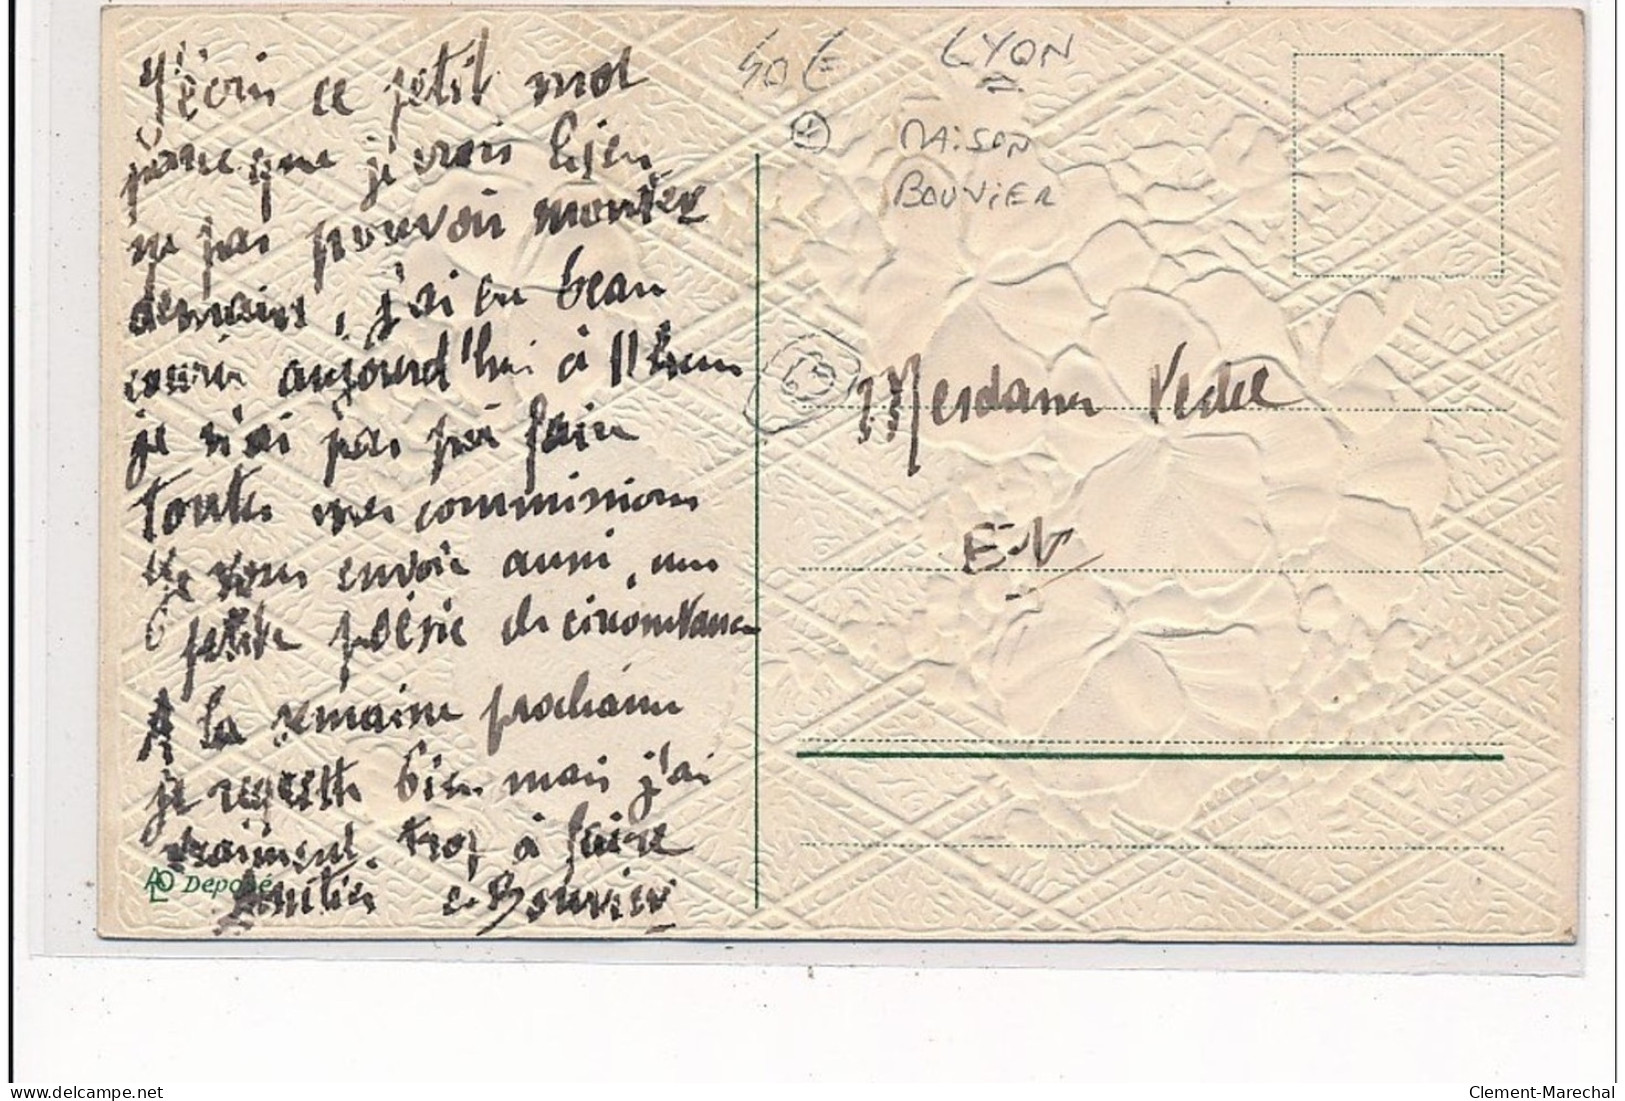 J'écris ce petit mot
parce que je vois bien
ne pas pouvoir monter
demain, j'ai eu beau
courir aujourd'hui à 11 heures
je n'ai pas pu faire
toutes mes commissions
Je vous envoie aussi, une
petite poésie de circonstance
A la semaine prochaine
je regrette bien mais j'ai
vraiment trop à faire
Amitiés C. Bouvier
Déposé
40 €
LYON
MAISON
BOUVIER
13
Mesdames Vedel
E.V
Clement-Marechal